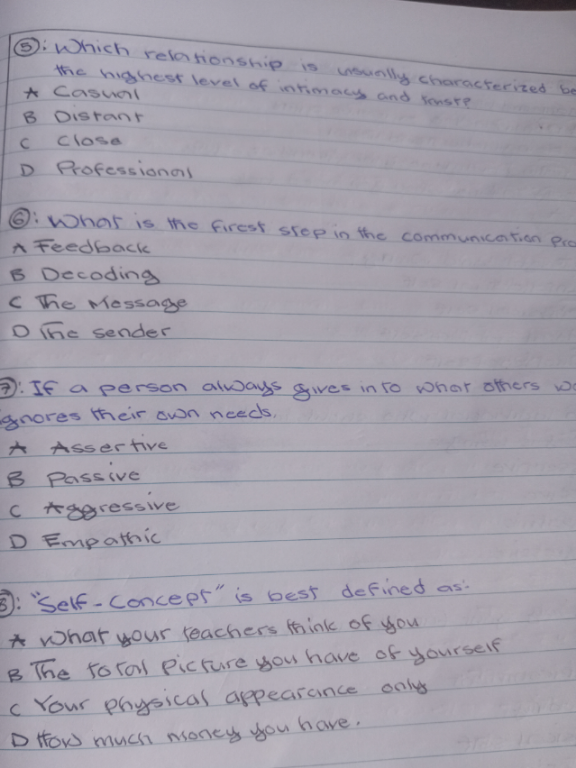 ⑤: Which relationship is usually characterized be
the highest level of intimacy and trust?
A Casual
B Distant
C Close
D Professional
⑥: What is the firest step in the communication Pro
A Feedback
B Decoding
C The Message
D The sender
⑦: If a person always gives into what others wa
gnores their own needs.
A Assertive
B Passive
C Aggressive
D Empathic
⑧: "Self-Concept" is best defined as:
A What your teachers think of you
B The total Picture you have of yourself
C Your physical appearance only
D How much money you have.